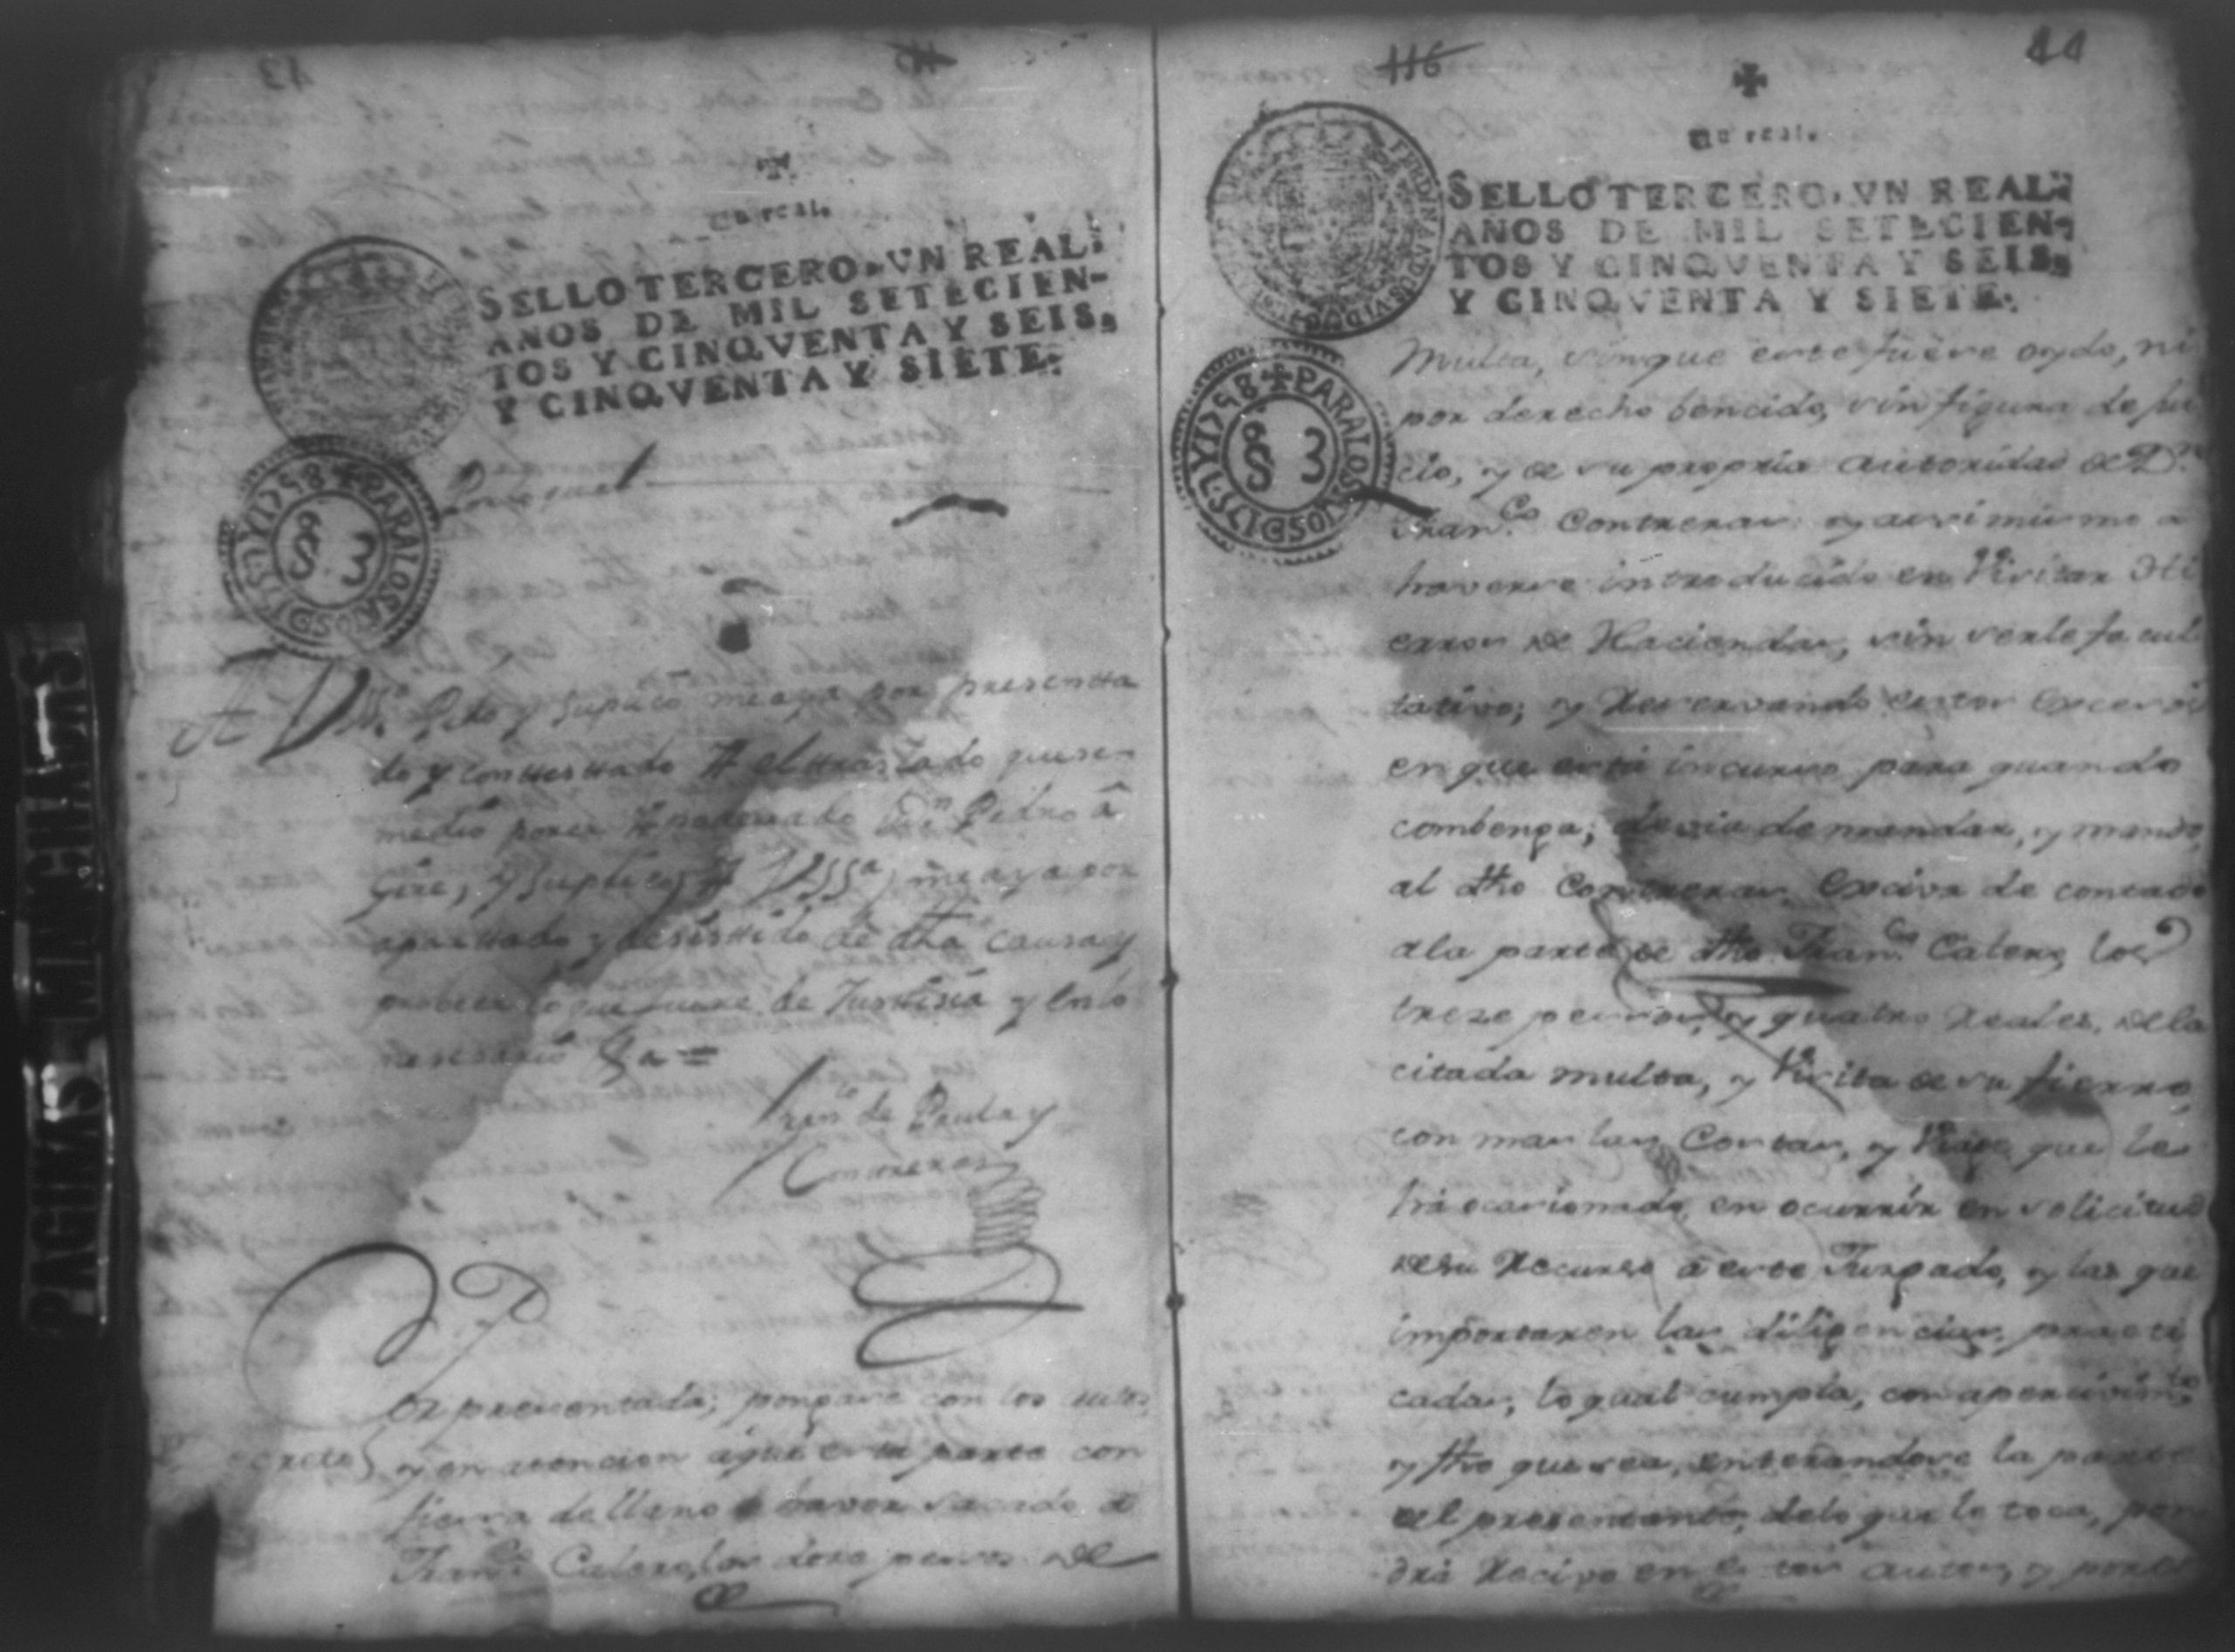 43
Un real.
SELLO TERCERO, VN REAL:
AÑOS DE MIL SETECIEN-
TOS Y CINQVENTA Y SEIS,
Y CINQVENTA Y SIETE.
PARA LOS AÑOS D 1757. Y 1758
Por lo qual
A Vm. Pido y Suplico me aya por presentta
do y conttesttado A el ttraslado que se
me dio por el Apoderado Dn. Pedro
y Suplico A VSSa, me aya por
aparttado y desisttido de dha causa y
probeer lo que fuere de Justtisia y en lo
nesesario &a =
Franco. de Paula y
Conttreras
Por presentada; pongase con los autos
y en atencion aque esta parte con
fiessa de llano haver sacado a
Franco. Calero, los doze pesos de
PAGINAS MANCHADAS
116
44
Un real.
SELLO TERCERO, VN REAL:
AÑOS DE MIL SETECIEN-
TOS Y CINQVENTA Y SEIS,
Y CINQVENTA Y SIETE.
PARA LOS AÑOS D 1757. Y 1758
Multa, sin que este fuese oydo, ni
por derecho bencido, sin figura de jui
cio, y de su propria autoridad de Dn.
Franco. Contreras: y assi mismo a
haverse introducido en Visitar Hi
erros de Haciendas, sin serle facul
tativo; y Reservando estos Excesos
en que está incurso para quando
combenga; devia de mandar, y mando,
al dho Contreras, Exciva de contado
ala parte de dho Franco. Calero, los
treze pessos, y quatro Reales, dela
citada multa, y Visita de su fierro,
con mas las Costas, y Viaje que le
há ocasionado, en ocurrir en solicitud
desu Recurso á este Juzgado, y las que
importaren las diligencias practi
cadas, lo qual cumpla, con apercivimto.
y fho que sea, enterandose la parte
del presentante, delo que le toca, pon
drá Recivo en estos autos, y por el